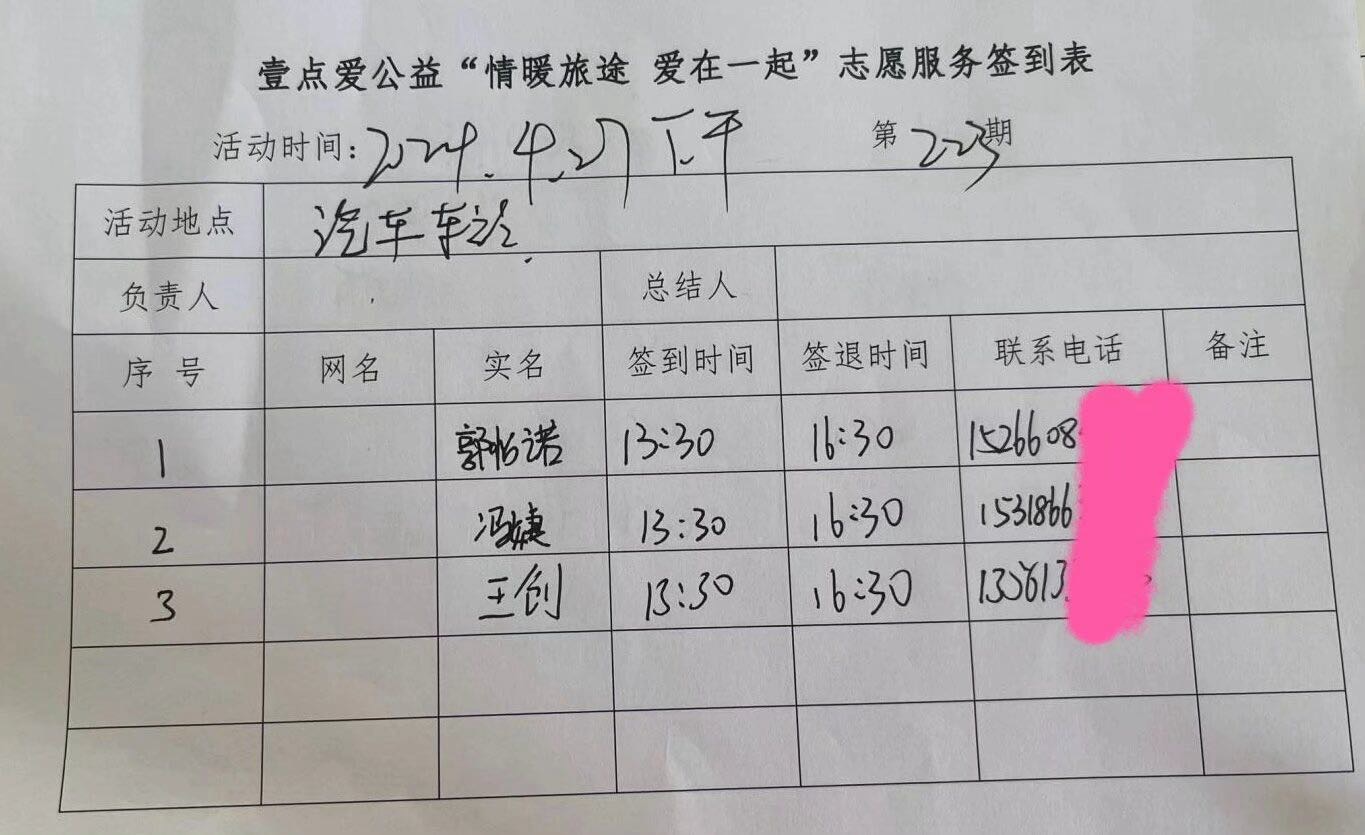 壹点爱公益“情暖旅途 爱在一起”志愿服务签到表
活动时间：2024.4.27下午 第223期
活动地点 汽车车站
负责人 总结人
序号 网名 实名 签到时间 签退时间 联系电话 备注
1 郭怡诺 13:30 16:30 1526608
2 冯婕 13:30 16:30 1531866
3 王创 13:30 16:30 135613